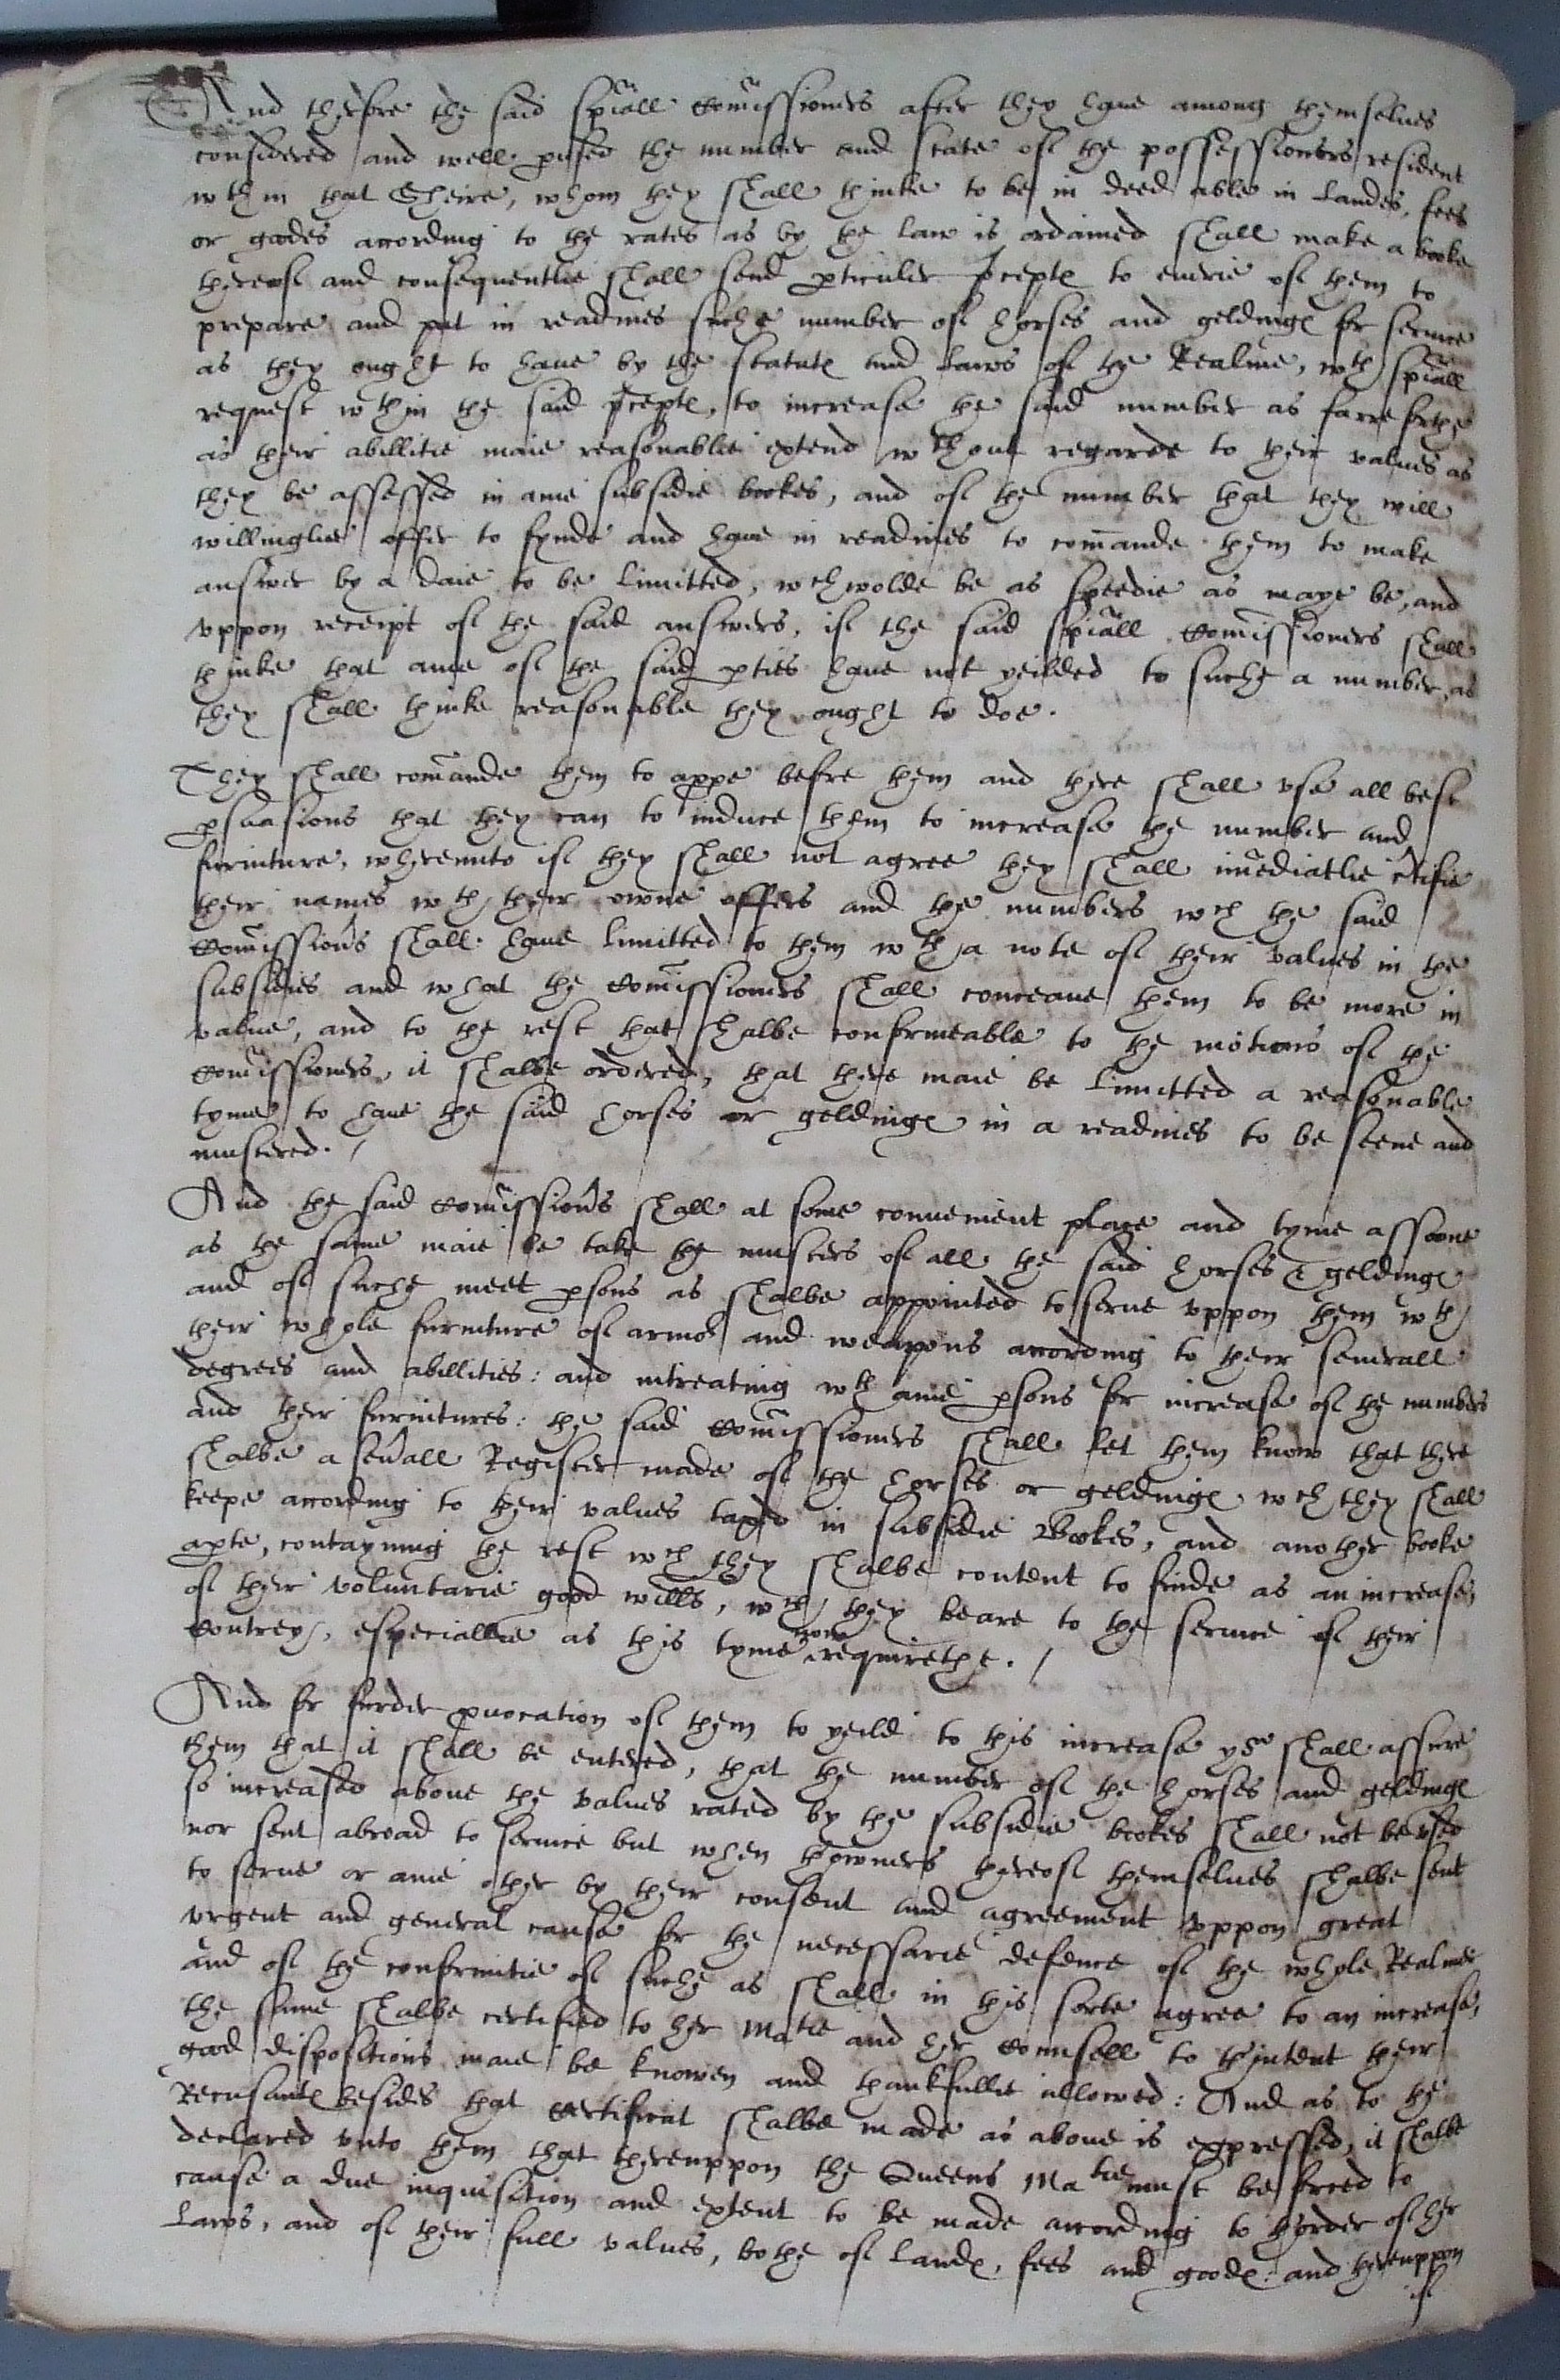 And therfore the said spiall Comissioners after they haue among themselues
considered and well pused the number and state of the possessioners resident
wthin that Sheire, whom they shall thinke to be in deed able in landes, fees
or goodes according to the rates as by the law is ordained shall make a booke
thereof and consequentlie shall send pticuler pcepts to euerie of them to
prepare and put in readines suche number of horses and geldings for seruice
as they ought to haue by the statuts and lawes of the Realme, wth spiall
request wthin the said pcepts, to increase the said number as farre forthe
as their abillitie maie reasonablie extend wthout regarde to their values as
they be assessed in anie subsidie bookes, and of the number that they will
willinglie offer to fynde and haue in readines to comande them to make
answer by a daie to be limitted, wch wolde be as speedie as maye be, and
vppon receipt of the said answers, if the said spiall Comissioners shall
thinke that anie of the said pties haue not yeilded to suche a number, as
they shall thinke reasonable they ought to doe.
They shall comande them to appe before them and there shall vse all best
psuasions that they can to induce them to increase the number and
furniture, wherevnto if they shall not agree they shall imediatlie ctifie
their names wth their owne offers and the numbers wch the said
Comissions shall haue limitted to them wth a note of their values in the
subsidies and what the Comissioners shall conceaue them to be more in
value, and to the rest that shalbe conformeable to the motions of the
Comissioners, it shalbe ordered, that there maie be limitted a reasonable
tyme to haue the said horses or geldings in a readines to be seene and
mustered. /
And the said Comissions shall at some conuenient place and tyme assoone
as the same maie be take the musters of all the said horses & geldings
and of suche meet psons as shalbe appointed to serue vppon them wth
their whole furniture of armor and weappons according to their seuerall
degrees and abillities: and intreating wth anie psons for increase of the numbers
and their furnitures: the said Comissioners shall let them know that there
shalbe a seuall Register made of the horses or geldings wch they shall
keepe according to their values taxed in subsidie Bookes, and another booke
apte, contayning the rest wch they shalbe content to finde as an increase
of their voluntarie good wills, wch they beare to the seruice of their
Contrey, especiallie as this tyme now requirethe. /
And for furder puocation of them to yeild to this increase ye shall assure
them that it shall be entered, that the number of the horses and geldings
so increased aboue the values rated by the subsidie bookes shall not be vsed
nor sent abroad to seruice but when thowners thereof themselues shalbe sent
to serue or anie other by their consent and agreement vppon great
vrgent and general cause for the necessarie defence of the whole Realme
and of the conformitie of suche as shall in this sorte agree to an increase,
the same shalbe certified to her Matie and her Counsell to thintent their
good dispositions maie be knowen and thankfullie allowed: And as to the
Recusants besides that Certificat shalbe made as aboue is expressed, it shalbe
declared vnto them that therevppon the Queens Matie must be forced to
cause a due inquisition and extent to be made according to thorder of her
lawes, and of their full values, bothe of lands, fees and goods: and therevppon
if